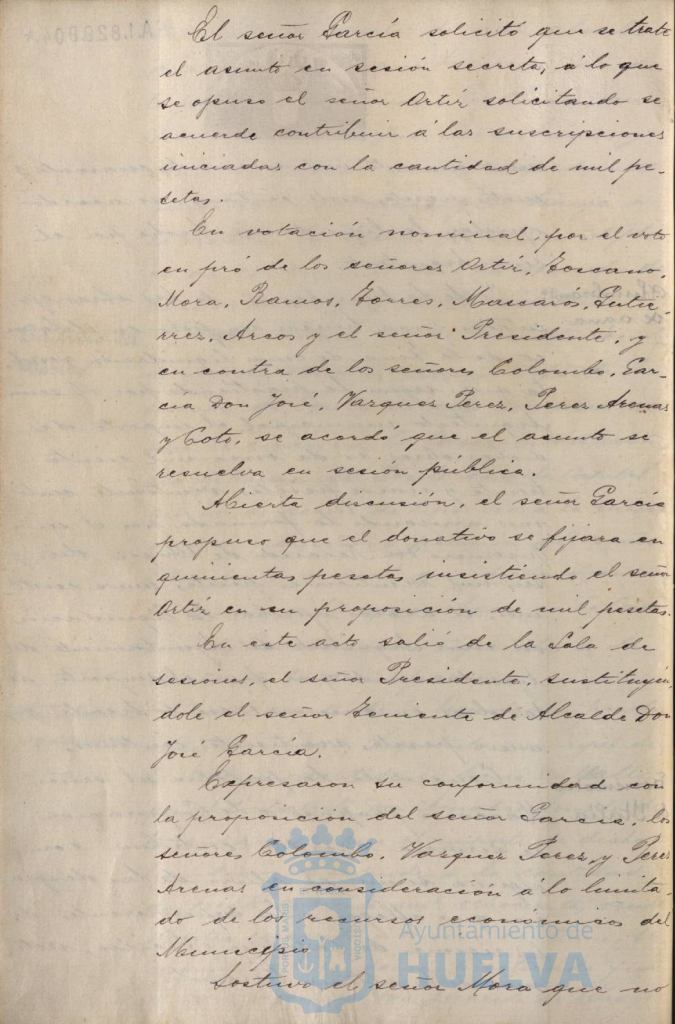 El señor García solicitó que se trate
el asunto en sesión secreta, á lo que
se opuso el señor Ortiz solicitando se
acuerde contribuir á las suscripciones
iniciadas con la cantidad de mil pe-
setas.
En votación nominal, por el voto
en pró de los señores Ortiz, Toscano,
Mora, Ramos, Torres, Mascarós, Gutié-
rrez, Arcos y el señor Presidente, y
en contra de los señores Colombo, Gar-
cía Don José, Vazquez Perez, Perez Arenas
y Coto, se acordó que el asunto se
resuelva en sesión pública.
Abierta discusión, el señor García
propuso que el donativo se fijara en
quinientas pesetas insistiendo el señor
Ortiz en su proposición de mil pesetas.
En este acto salió de la Sala de
sesiones, el señor Presidente, sustituyén-
dole el señor Teniente de Alcalde Don
José García.
Expresaron su conformidad con
la proposición del señor García, los
señores Colombo, Vazquez Perez, y Perez
Arenas en consideración á lo limita-
do de los recursos económicos del
Municipio
Sostuvo el señor Mora que no
Ayuntamiento de
HUELVA